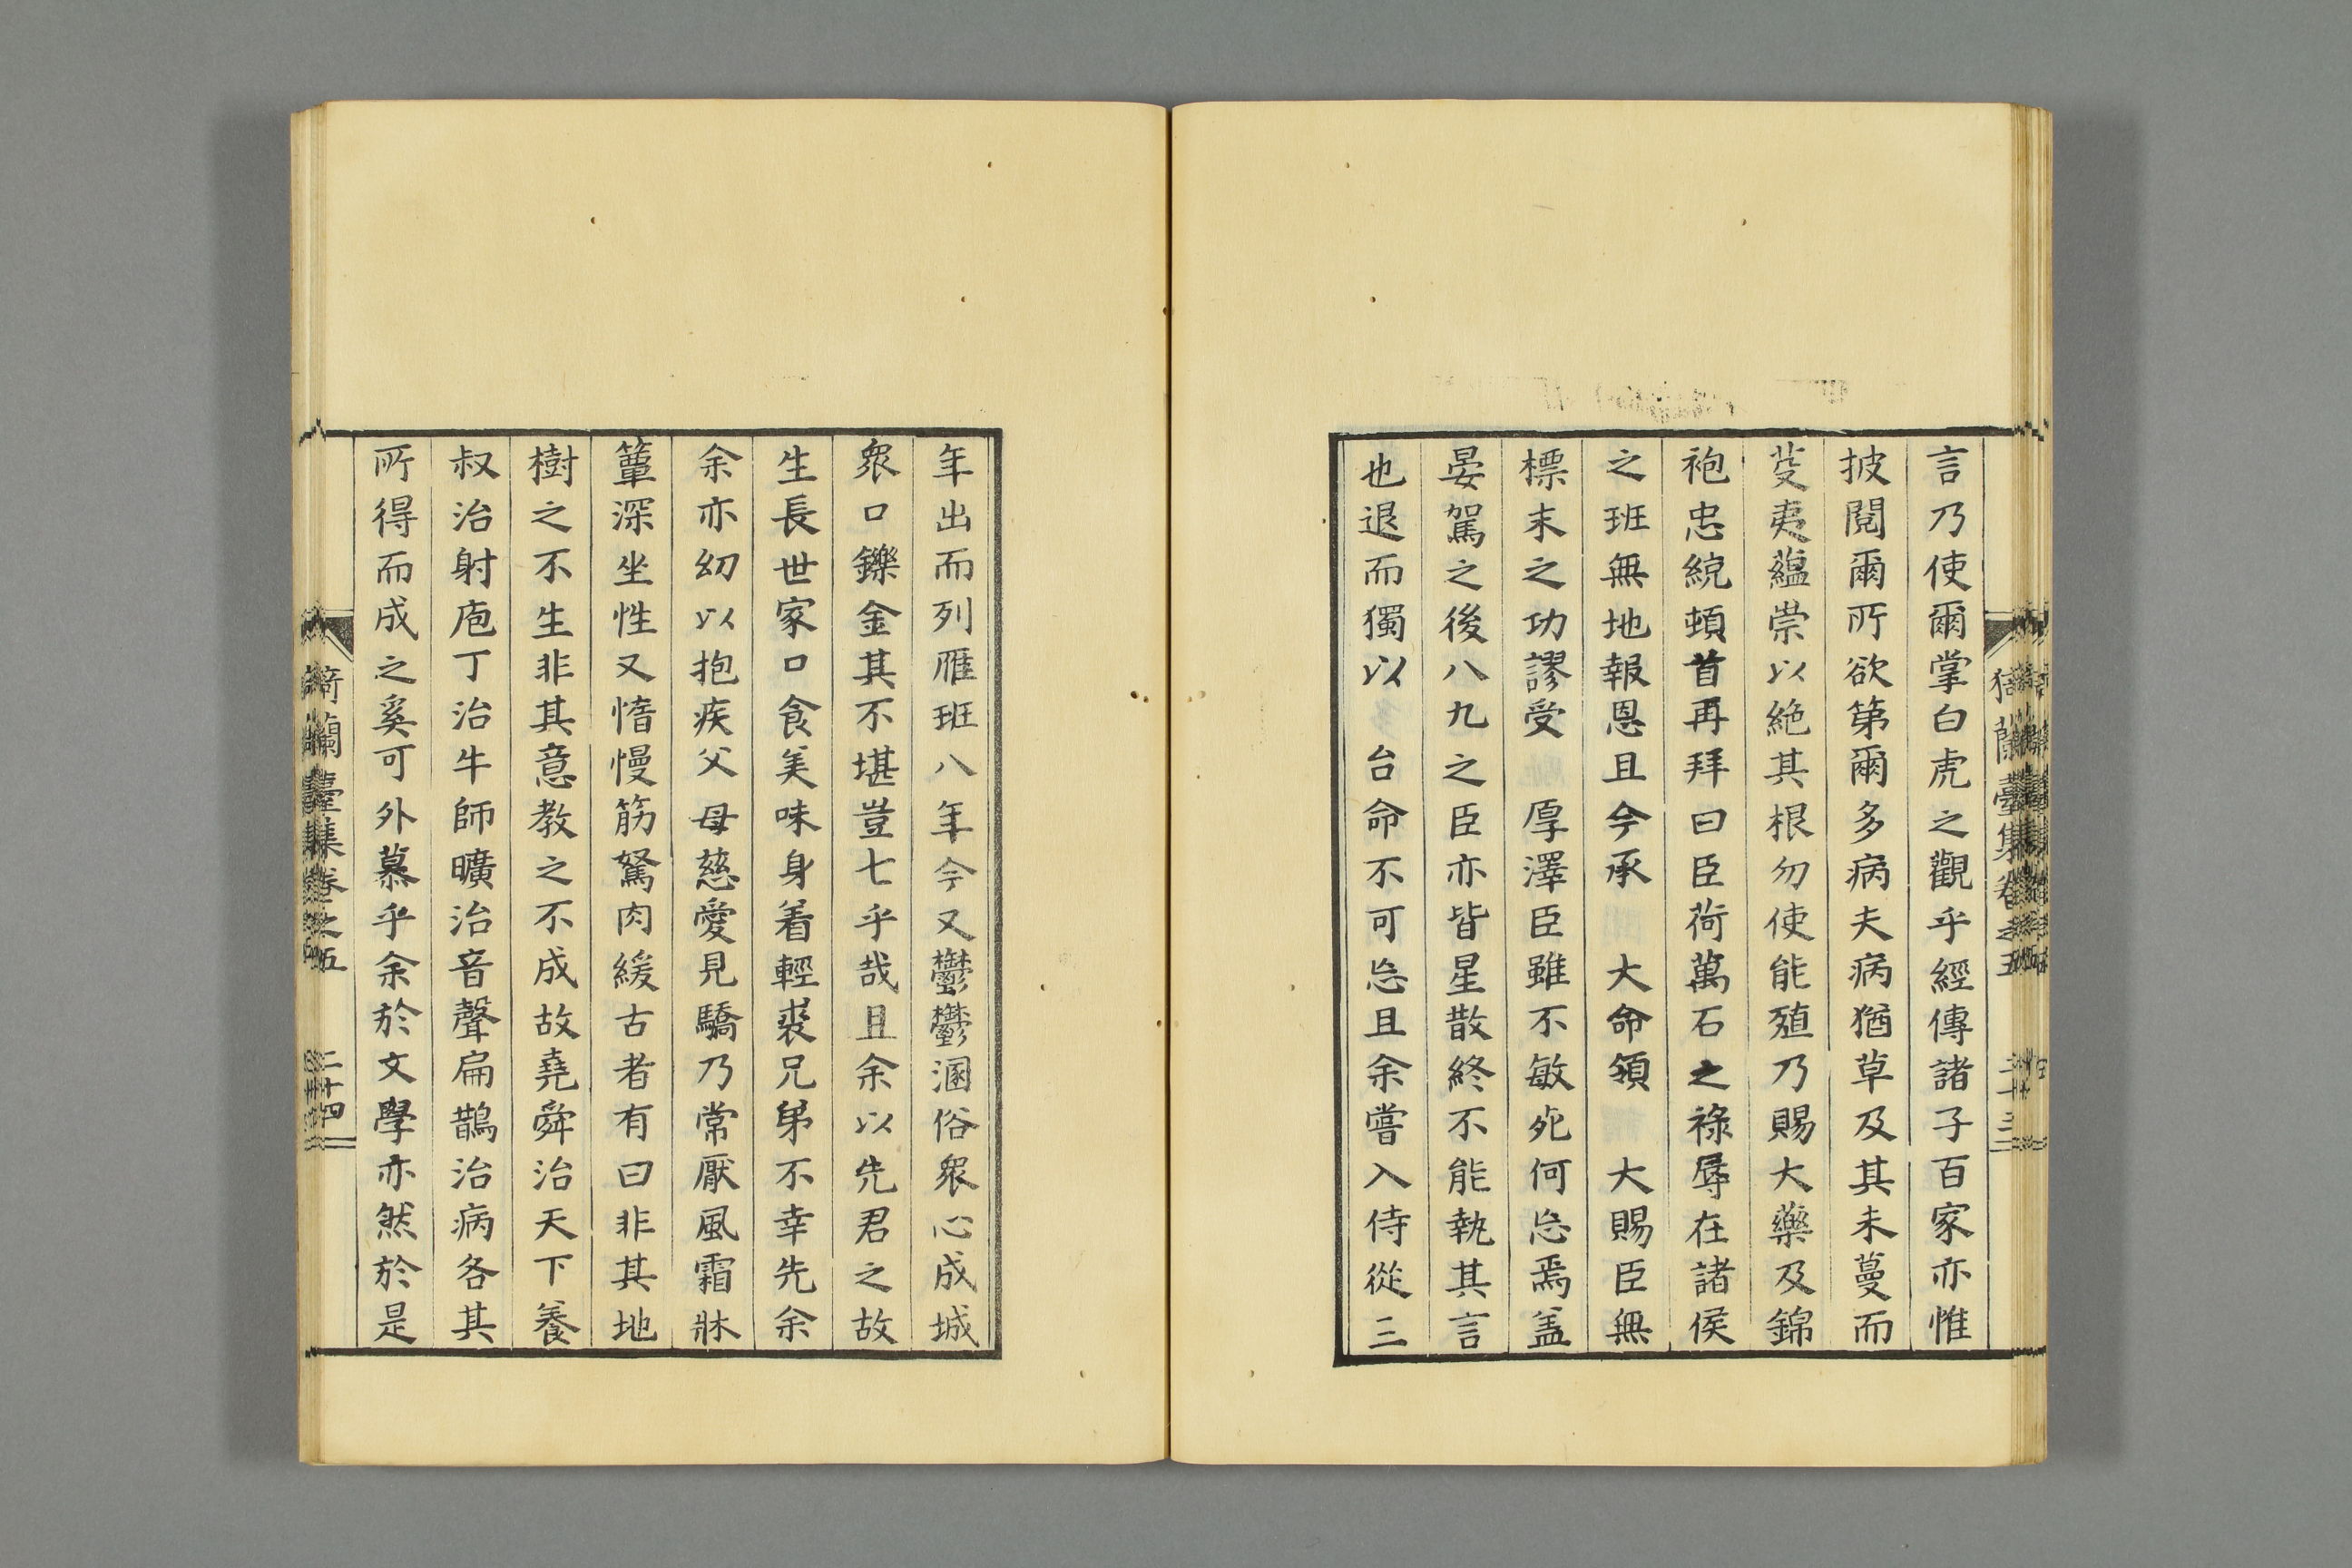 言乃使爾掌白虎之觀乎經傳諸子百家亦惟
披閱爾所欲第爾多病夫病猶草及其未蔓而
芟夷蘊崇以絶其根勿使能殖乃賜大藥及錦
袍忠統頓首再拜曰臣荷萬石之祿辱在諸侯
之班無地報恩且今承　大命領　大賜臣無
標末之功謬受　厚澤臣雖不敏死何忘焉盖
晏駕之後八九之臣亦皆星散終不能執其言
也退而獨以　台命不可忘且余嘗入侍從三
猗蘭臺集卷之五　二十三
年出而列雁班八年今又鬱鬱溷俗衆心成城
衆口鑠金其不堪豈七乎哉且余以先君之故
生長世家口食美味身着輕裘兄弟不幸先余
余亦幼以抱疾父母慈愛見驕乃常厭風霜牀
簟深坐性又惰慢筋駑肉緩古者有曰非其地
樹之不生非其意教之不成故堯舜治天下養
叔治射庖丁治牛師曠治音聲扁鵲治病各其
所得而成之奚可外慕乎余於文學亦然於是
猗蘭臺集卷之五　二十四